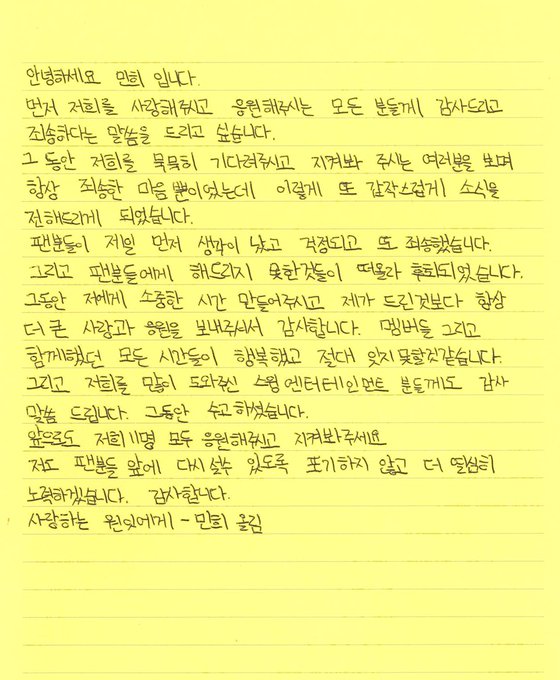 안녕하세요 민희 입니다.
먼저 저희를 사랑해주시고 응원해주시는 모든 분들께 감사드리고
죄송하다는 말씀을 드리고 싶습니다.
그 동안 저희를 묵묵히 기다려주시고 지켜봐 주시는 여러분을 보며
항상 죄송한 마음 뿐이었는데 이렇게 또 갑작스럽게 소식을
전해드리게 되었습니다.
팬분들이 제일 먼저 생각이 났고 걱정되고 또 죄송했습니다.
그리고 팬분들에게 해드리지 못한것들이 떠올라 후회되었습니다.
그동안 저에게 소중한 시간 만들어주시고 제가 드린것보다 항상
더 큰 사랑과 응원을 보내주셔서 감사합니다. 멤버들 그리고
함께했던 모든 시간들이 행복했고 절대 잊지 못할것같습니다.
그리고 저희를 많이 도와주신 스윙엔터테인먼트 분들께도 감사
말씀 드립니다. 그동안 수고하셨습니다.
앞으로도 저희 11명 모두 응원해주시고 지켜봐주세요
저도 팬분들 앞에 다시 설수 있도록 포기하지 않고 더 열심히
노력하겠습니다. 감사합니다.
사랑하는 원잇에게 - 민희 올림